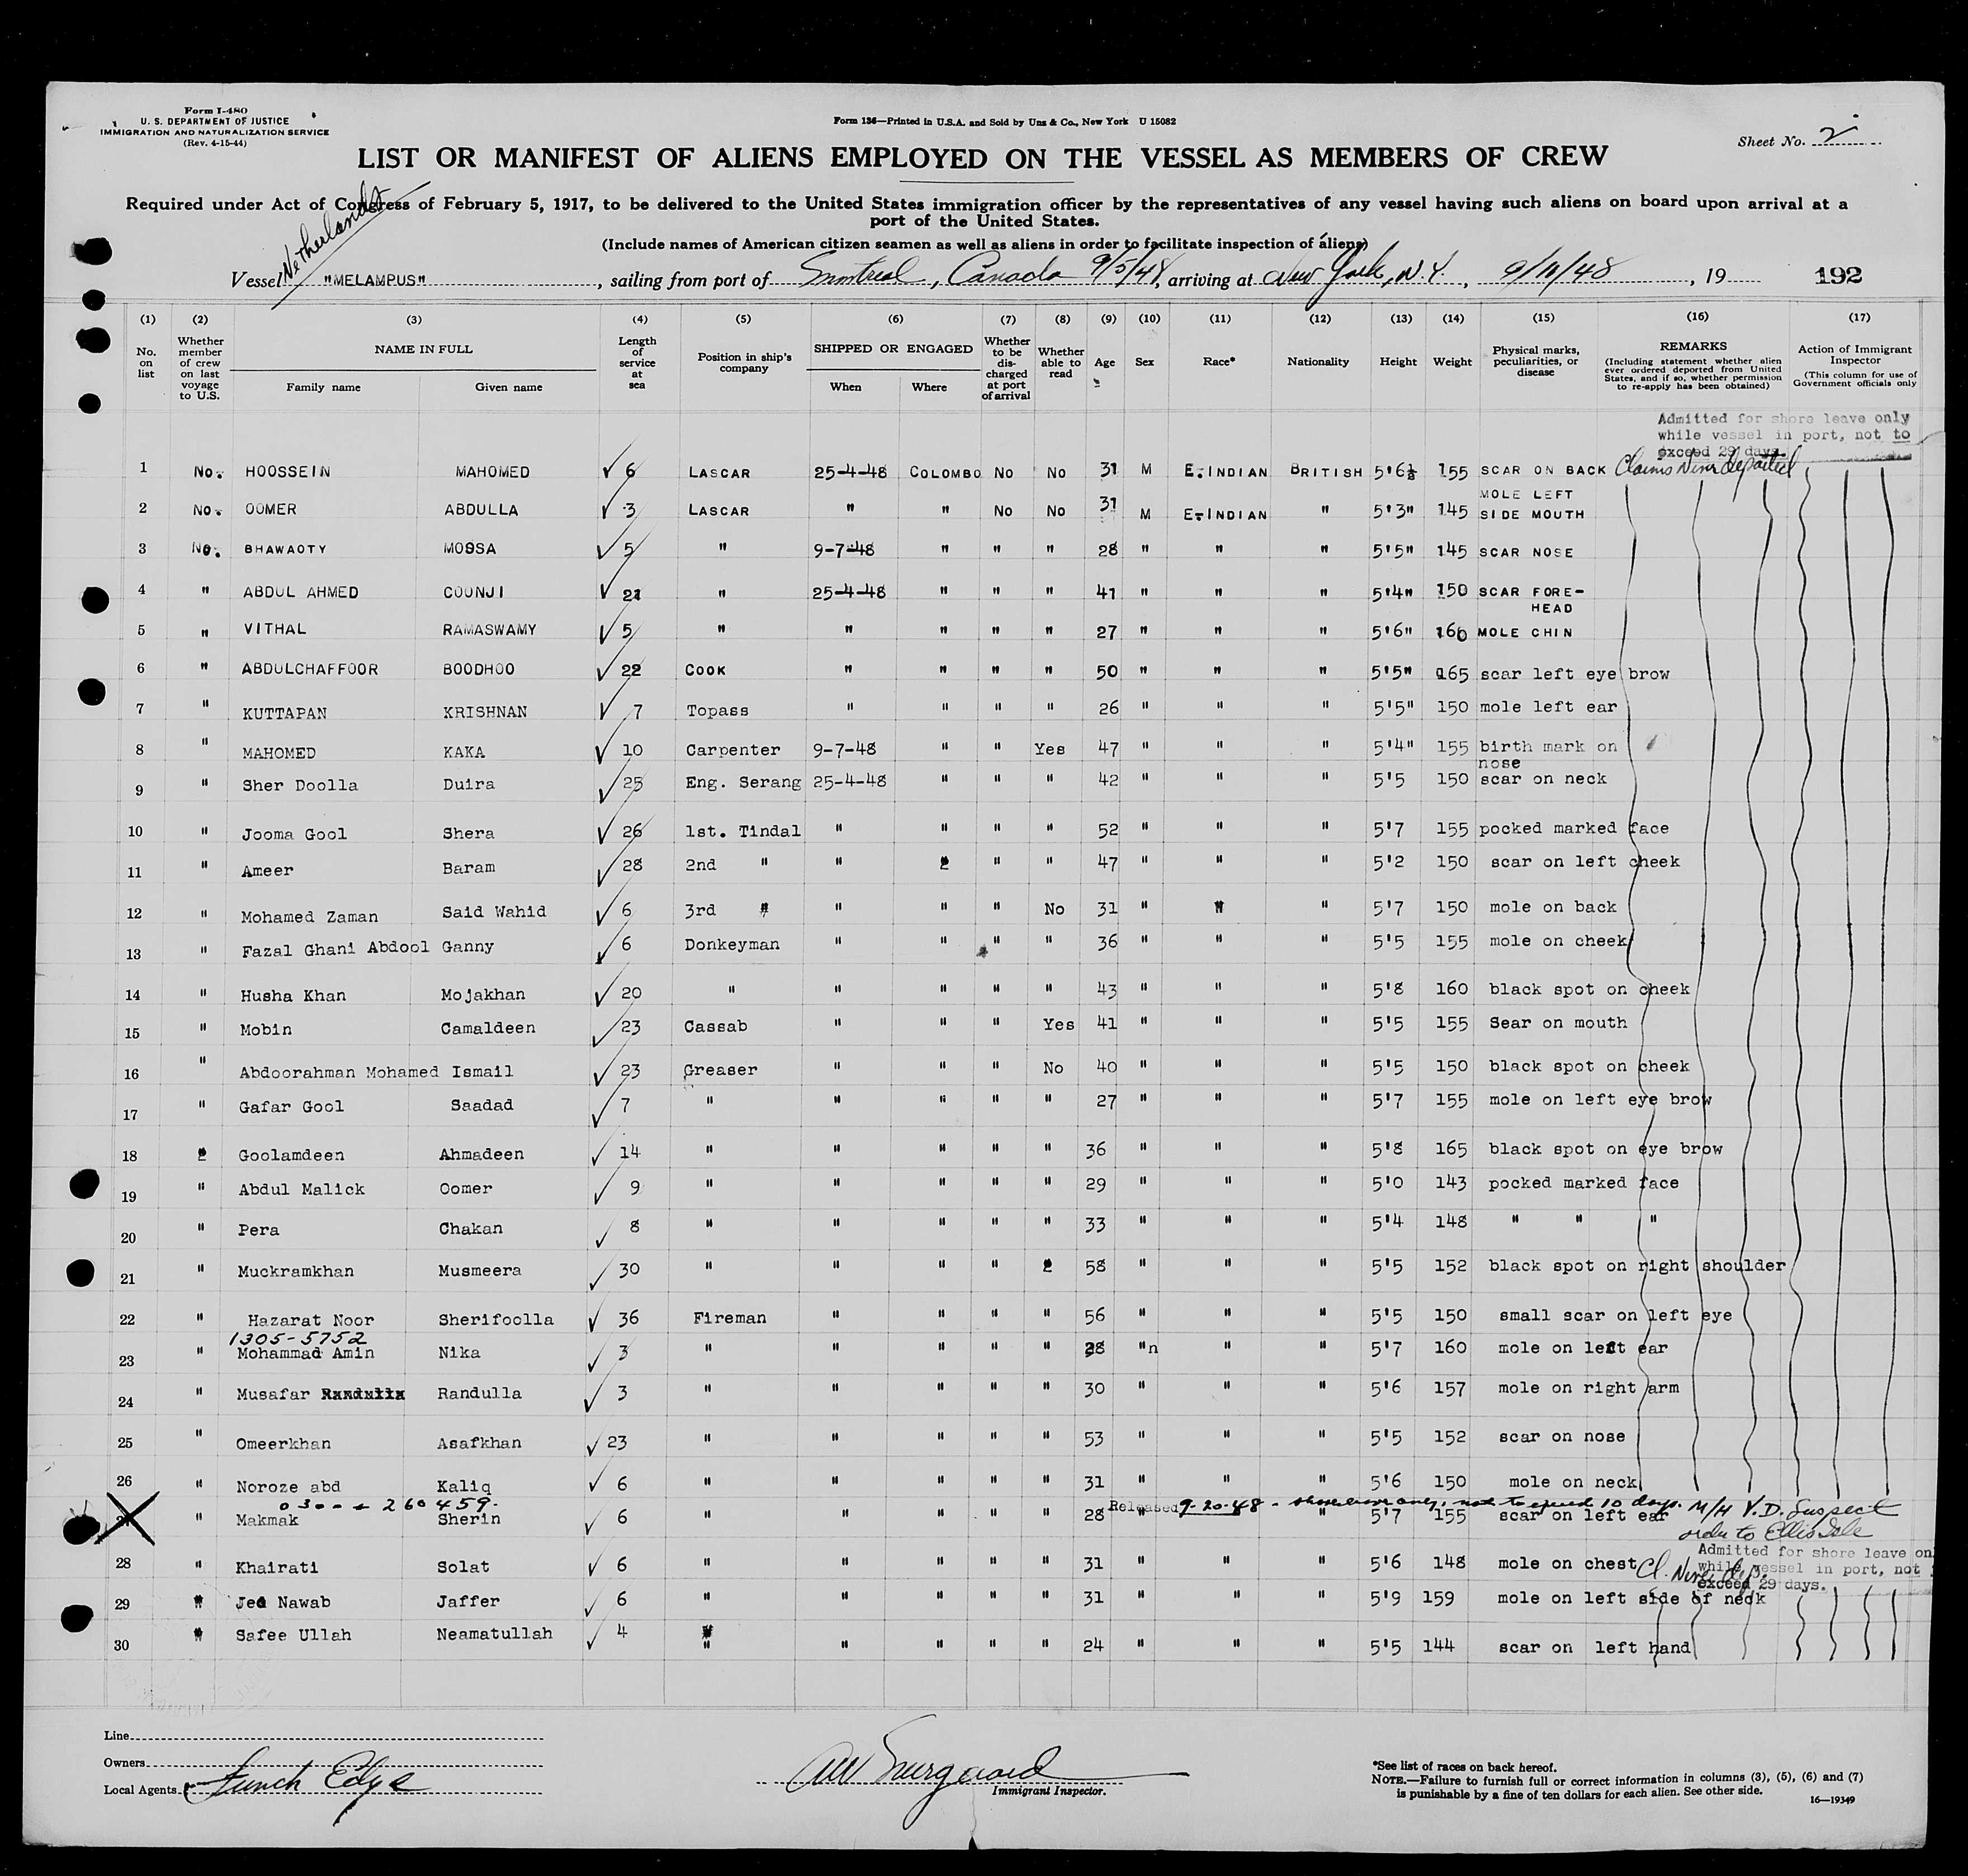 Form I-480
U. S. DEPARTMENT OF JUSTICE
IMMIGRATION AND NATURALIZATION SERVICE
(Rev. 4-15-44)
Form 136—Printed in U.S.A. and Sold by Unz & Co., New York U 15082
Sheet No. 2
LIST OR MANIFEST OF ALIENS EMPLOYED ON THE VESSEL AS MEMBERS OF CREW
Required under Act of Congress of February 5, 1917, to be delivered to the United States immigration officer by the representatives of any vessel having such aliens on board upon arrival at a
port of the United States.
(Include names of American citizen seamen as well as aliens in order to facilitate inspection of aliens)
Netherlands
Vessel "MELAMPUS", sailing from port of Montreal, Canada 9/5/48, arriving at New York, N.Y., 9/11/48, 19 192
(1) (2) (3) (4) (5) (6) (7) (8) (9) (10) (11) (12) (13) (14) (15) (16) (17)
No. on list
Whether member of crew on last voyage to U.S.
NAME IN FULL
Family name Given name
Length of service at sea
Position in ship's company
SHIPPED OR ENGAGED
When Where
Whether to be discharged at port of arrival
Whether able to read
Age
Sex
Race*
Nationality
Height
Weight
Physical marks, peculiarities, or disease
REMARKS
(Including statement whether alien ever ordered deported from United States, and if so, whether permission to re-apply has been obtained)
Action of Immigrant Inspector
(This column for use of Government officials only
Admitted for shore leave only
while vessel in port, not to
exceed 29 days.
1 No. HOOSSEIN MAHOMED 6 LASCAR 25-4-48 COLOMBO No No 31 M E. INDIAN BRITISH 5'6½ 155 SCAR ON BACK Claims Never deported
2 No. OOMER ABDULLA 3 LASCAR " " No No 31 M E-INDIAN " 5'3" 145 MOLE LEFT SIDE MOUTH
3 No. BHAWAOTY MOSSA 5 " 9-7-48 " " " 28 " " " 5'5" 145 SCAR NOSE
4 " ABDUL AHMED COONJI 21 " 25-4-48 " " " 41 " " " 5'4" 150 SCAR FORE-HEAD
5 " VITHAL RAMASWAMY 5 " " " " " 27 " " " 5'6" 160 MOLE CHIN
6 " ABDULCHAFFOOR BOODHOO 22 COOK " " " " 50 " " " 5'5" 165 scar left eye brow
7 " KUTTAPAN KRISHNAN 7 Topass " " " " 26 " " " 5'5" 150 mole left ear
8 " MAHOMED KAKA 10 Carpenter 9-7-48 " " Yes 47 " " " 5'4" 155 birth mark on nose
9 " Sher Doolla Duira 25 Eng. Serang 25-4-48 " " " 42 " " " 5'5 150 scar on neck
10 " Jooma Gool Shera 26 1st. Tindal " " " " 52 " " " 5'7 155 pocked marked face
11 " Ameer Baram 28 2nd " " " " " 47 " " " 5'2 150 scar on left cheek
12 " Mohamed Zaman Said Wahid 6 3rd " " " " No 31 " " " 5'7 150 mole on back
13 " Fazal Ghani Abdool Ganny 6 Donkeyman " " " " 36 " " " 5'5 155 mole on cheek
14 " Husha Khan Mojakhan 20 " " " " " 43 " " " 5'8 160 black spot on cheek
15 " Mobin Camaldeen 23 Cassab " " " Yes 41 " " " 5'5 155 Sear on mouth
16 " Abdoorahman Mohamed Ismail 23 Greaser " " " No 40 " " " 5'5 150 black spot on cheek
17 " Gafar Gool Saadad 7 " " " " " 27 " " " 5'7 155 mole on left eye brow
18 " Goolamdeen Ahmadeen 14 " " " " " 36 " " " 5'8 165 black spot on eye brow
19 " Abdul Malick Oomer 9 " " " " " 29 " " " 5'0 143 pocked marked face
20 " Pera Chakan 8 " " " " " 33 " " " 5'4 148 " " "
21 " Muckramkhan Musmeera 30 " " " " " 58 " " " 5'5 152 black spot on right shoulder
22 " Hazarat Noor Sherifoolla 36 Fireman " " " " 56 " " " 5'5 150 small scar on left eye
1305-5752
23 " Mohammad Amin Nika 3 " " " " " 38 "n " " 5'7 160 mole on left ear
24 " Musafar Randulla Randulla 3 " " " " " 30 " " " 5'6 157 mole on right arm
25 " Omeerkhan Asafkhan 23 " " " " " 53 " " " 5'5 152 scar on nose
26 " Noroze abd Kaliq 6 " " " " " 31 " " " 5'6 150 mole on neck
0300-260459. Released 9-20-48 - shore leave only, not to exceed 10 days. M/H V.D. Suspect
27 " Makmak Sherin 6 " " " " " 28 " " 5'7 155 scar on left ear order to Ellis Isle
Admitted for shore leave on
while vessel in port, not
exceed 29 days.
28 " Khairati Solat 6 " " " " " 31 " " " 5'6 148 mole on chest Cl. Never dep.
29 " Jed Nawab Jaffer 6 " " " " " 31 " " " 5'9 159 mole on left side of neck
30 " Safee Ullah Neamatullah 4 " " " " " 24 " " " 5'5 144 scar on left hand
Line
Owners
Local Agents Funch Edye
Immigrant Inspector.
*See list of races on back hereof.
NOTE.—Failure to furnish full or correct information in columns (3), (5), (6) and (7)
is punishable by a fine of ten dollars for each alien. See other side.
16—19349